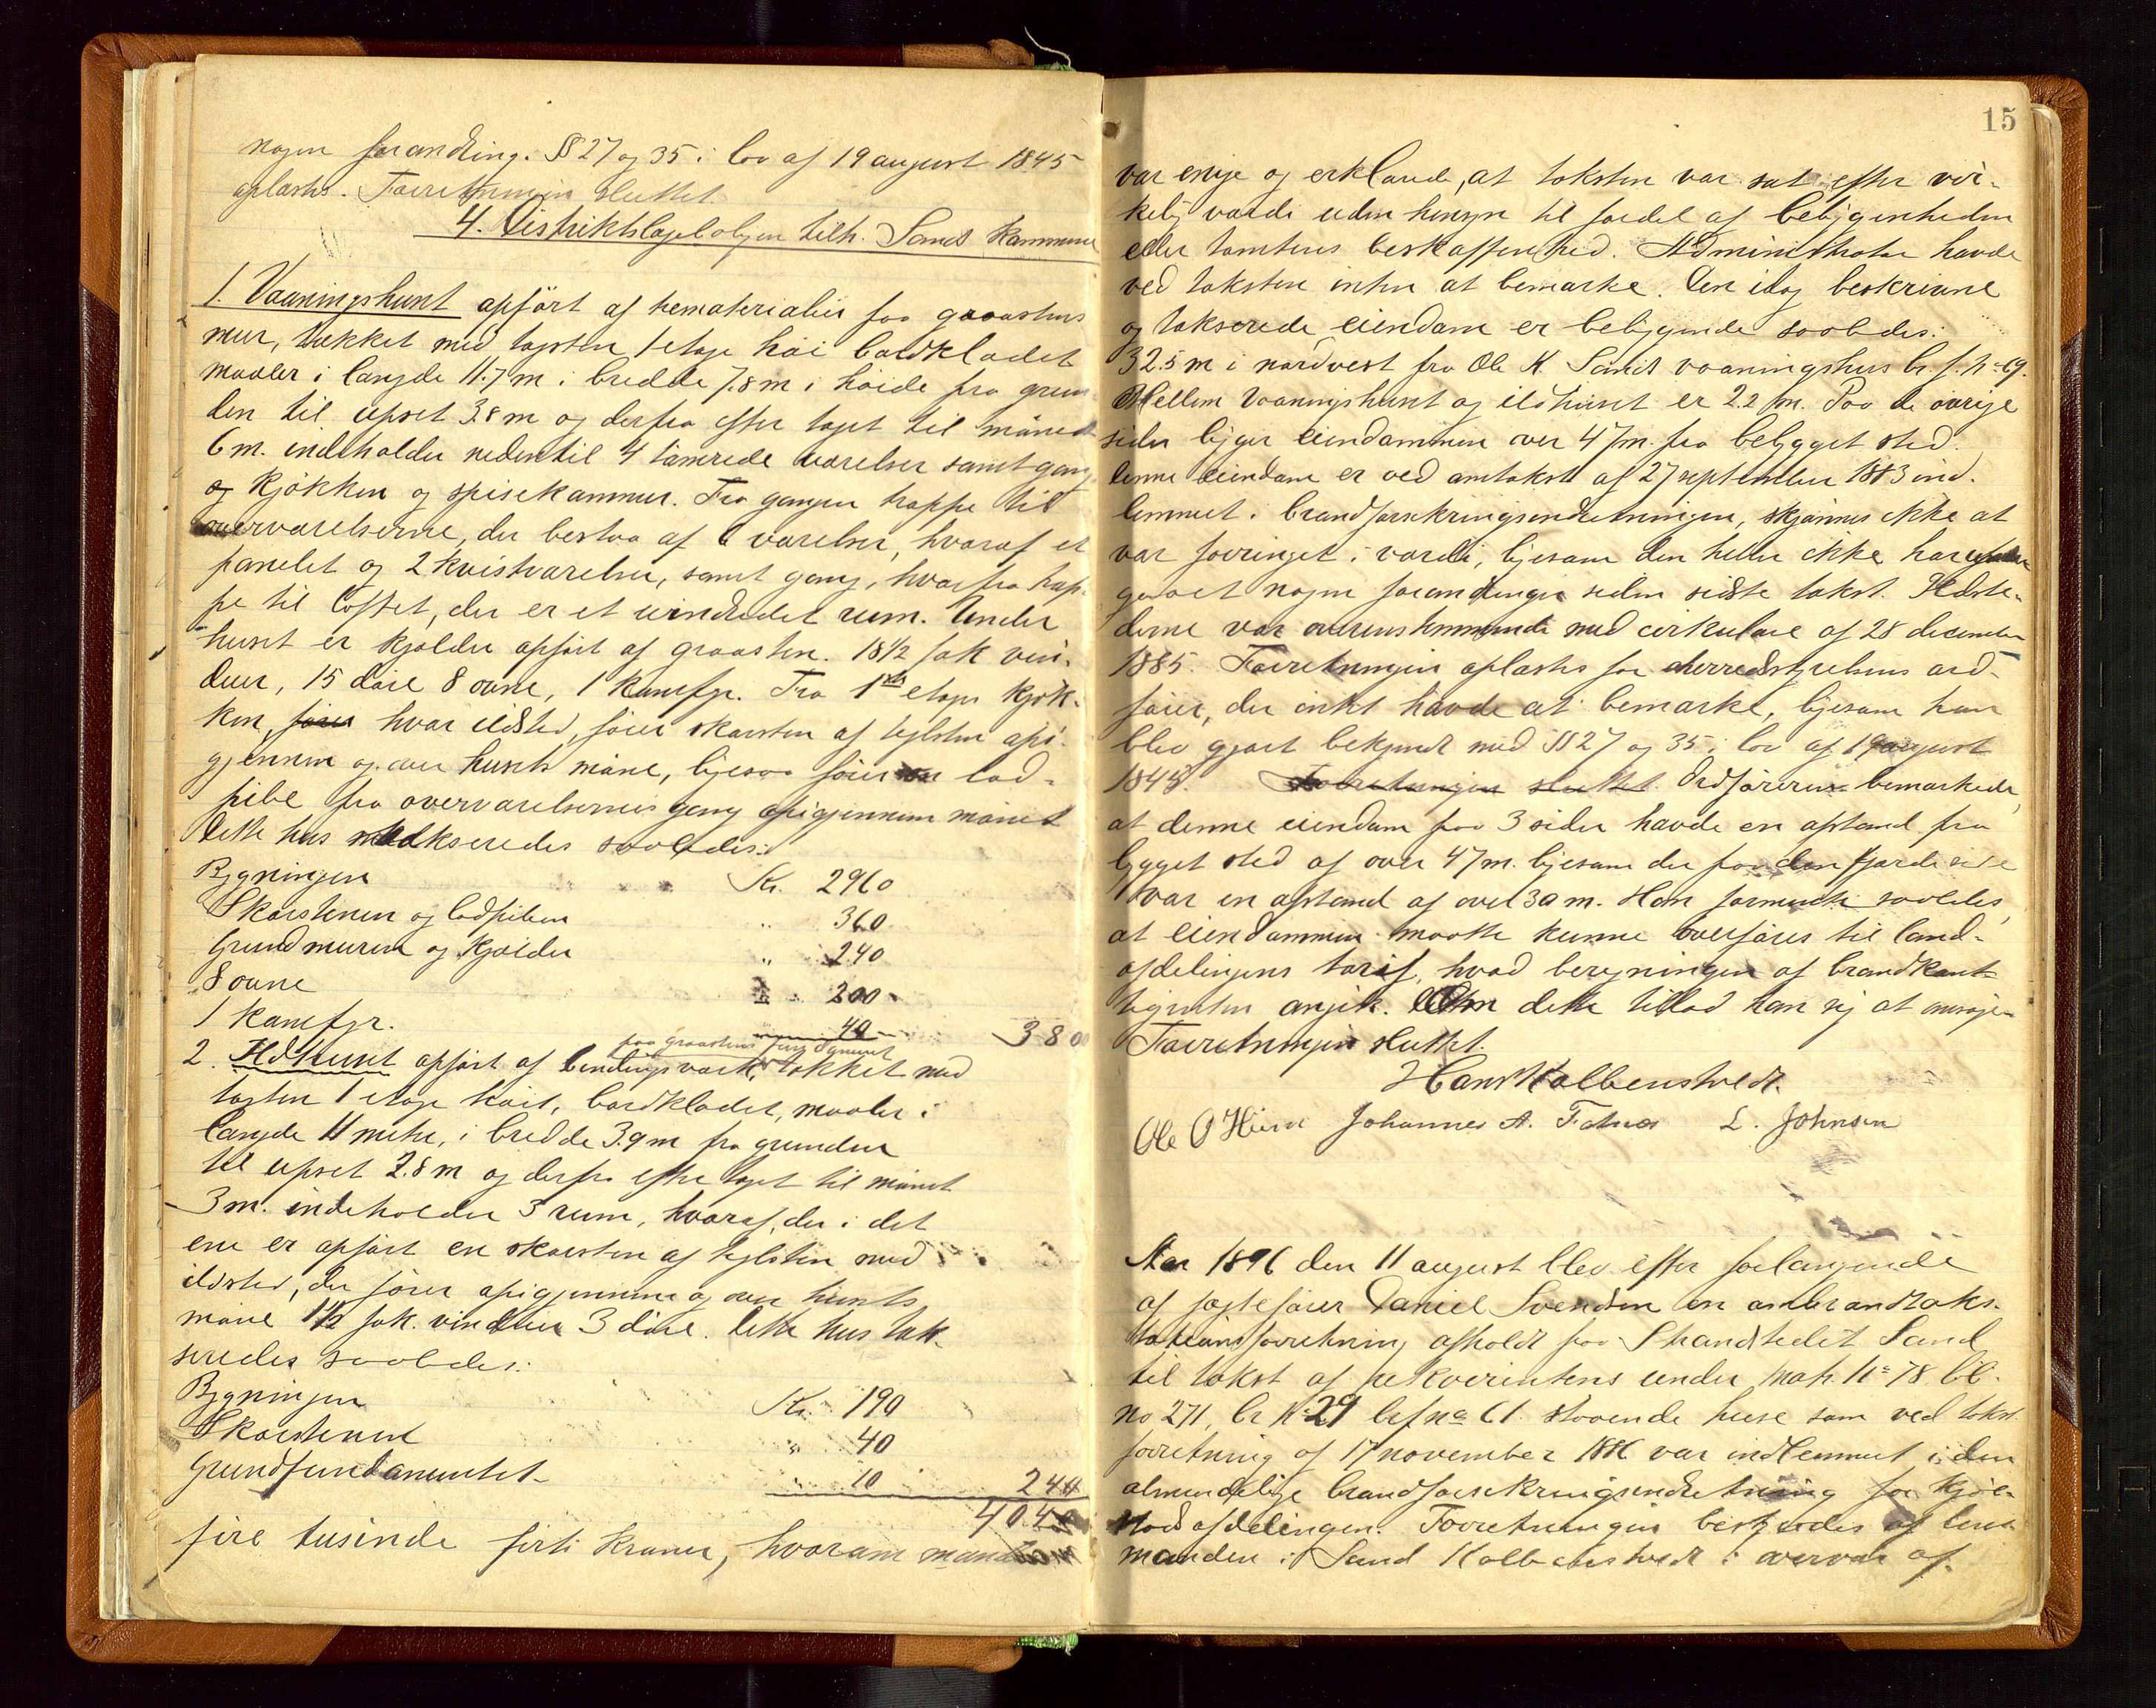 nogen forandring. §§ 27 og 35 i lov af 19 august 1845
oplæstes. Forretningen sluttet
4. Distriktslægebolgen tilh. Sands kommune
1. Vaaningshuset opført af træmaterialier paa graastens
mur, tækket med tagsten 1 etage høi bordklædet
maaler i længde 11.7 m i bredde 7.8 m i høide fra grun
den til upset 3.8 m og derfra efter taget til mønet
6 m. indeholder nedentil 4 tømrede værelser samt gang
og kjøkken og spisekammer. Fra gangen trappe til
overværelserne, der bestaa af 6 værelser, hvoraf et
panelet og 2 kvistværelser, samt gang, hvorfra trap-
pe til loftet, der er et uindredet rum. Under
huset er kjælder opført af graasten. 18 1/2 fak vin-
duer, 15 døre 8 ovne, 1 komfyr. Fra 1ste etages kjøk-
ken, fører hvor ildsted, fører skorsten af teglsten opi-
gjennem og over husets møne, ligesaa fører en lod-
pibe fra overværelsernes gang opigjennem mønet
Dette hus takseredes saaledes:
Bygningen Kr. 2960
Skorstenen og lodpiben " 360
Grundmuren og kjælder " 240
8 ovne " 200
1 komfyr. 40 3800
paa graastens fundament
2. Ildhuset opført af bindingsværk, tækket med
tagsten 1 etage høit, bordklædet, maaler i
længde 4 meter, i bredde 3.9 m fra grunden
til upset 2.8 m og derfra efter taget til mønet
3 m. indeholder 3 rum, hvoraf, der i det
ene er opført en skorsten af teglsten med
ildsted, der fører opigjennem og over husets
møne 1 1/2 fak. vinduer 3 døre. Dette hus tak-
seredes saaledes:
Bygningen Kr. 190
Skorstenen " 40
Grundfundamentet " 10 240
4040
fire tusinde firti kroner, hvorom mændene
15
var enige og erklærede, at taksten var sat efter vir-
kelig værdi uden hensyn til fordel af beliggenheden
eller tomtens beskaffenhed. Administrator havde
ved taksten intet at bemærke. Den idag beskrivne
og takserede eiendom er beliggende saaledes:
32.5 m i nordvest fra Ole H. Sands vaaningshus br. f. No 69.
Mellem vaaningshuset og ildhuset er 2.2 m. Paa de øvrige
sider ligger eiendommen over 47 m. fra bebygget sted.
Denne eiendom er ved omtakst af 27 september 1883 ind-
lemmet i brandforsikringsindretningen, skjønnes ikke at
var forringet i værdi, ligesom den heller ikke har under
gaaet nogen forandringer siden sidste takst. Ildste-
derne var overensstemmende med cirkulære af 28 december
1885. Forretningen oplæstes for herredsstyrelsens ord-
fører, der intet havde at bemærke, ligesom han
blev gjort bekjendt med §§ 27 og 35 i lov af 19 august
1845. Forretningen sluttet. Ordføreren bemærkede,
at denne eiendom paa 3 sider havde en afstand fra
bygget sted af over 47 m. ligesom der paa den fjerde side
var en afstand af over 30 m. Han formente saaledes,
at eiendommen maatte kunne overføres til land-
afdelingens tarif, hvad beregningen af brandkont-
ingenten angik. Om dette tillod han sig at ansøge.
Forretningen sluttet.
Hans Kolbenstvedt.
Ole O Hiim Johannes A. Fatnes L. Johnsen
Aar 1896 den 11 august blev efter forlangende
af fogtefører Daniel Svendsen en ombrandtaks-
tationsforretning afholdt paa Strandstedet Sand
til takst af rekvirentens under matr. No 78 lb.
no 271, br No 29 brf no 61 staaende huse som ved takst
forretning af 17 november 1886 var indlemmet i den
almindelige brandforsikringsindretning for kjøb-
stadsafdelingen. Forretningen bestyredes af lens-
manden i Sand Kolbenstvedt i overvær af